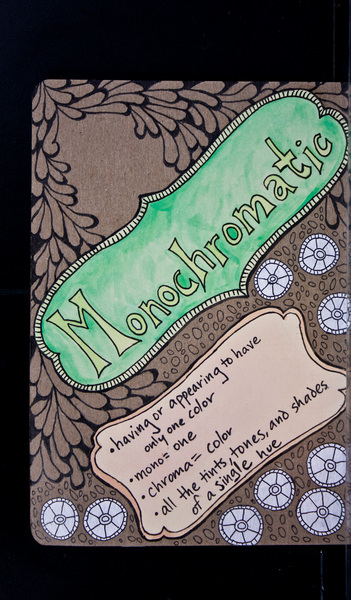 Monochromatic
•having or appearing to have
only one color
•mono= one
•chroma= color
•all the tints, tones, and shades
of a single hue